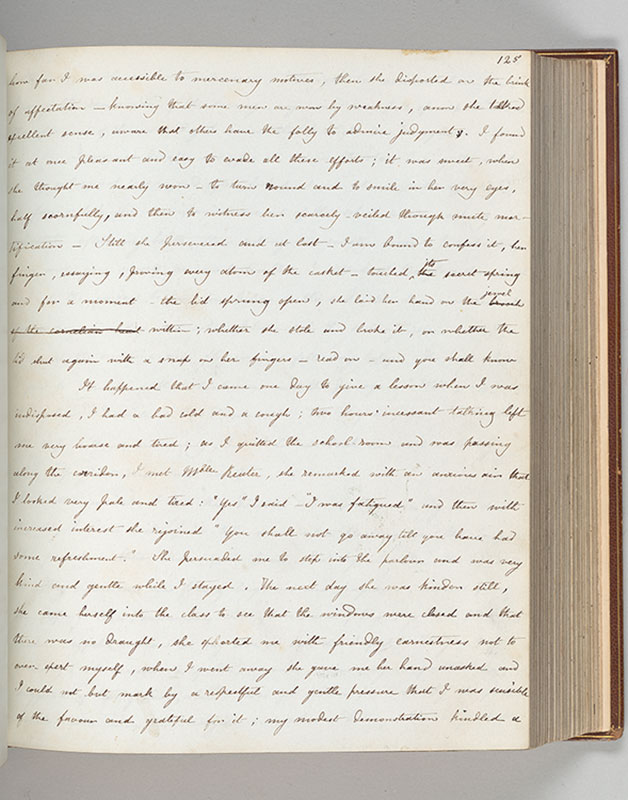 125
how far I was accessible to mercenary motives, then she disported on the brink
of affectation – knowing that some men are won by weakness, anon she talked
excellent sense, aware that others have the folly to admire judgment. I found
it at once pleasant and easy to evade all these efforts; it was sweet, when
she thought me nearly won – to turn round and to smile in her very eyes,
half scornfully, and then to witness her scarcely-veiled though mute mor-
tification – Still she persevered and at last – I am bound to confess it, her
finger, essaying, proving every atom of the casket – touched, its the secret spring
and for a moment – the lid sprung open, she laid her hand on the jewel
of the cornelian heart within; whether she stole and broke it, or whether the
lid shut again with a snap on her fingers – read on – and you shall know
It happened that I came one day to give a lesson when I was
indisposed, I had a bad cold and a cough; two hours' incessant talking left
me very hoarse and tired; as I quitted the school-room and was passing
along the corridor, I met Mdlle Reuter, she remarked with an anxious air that
I looked very pale and tired: "Yes" I said "I was fatigued" and then with
increased interest she rejoined "You shall not go away till you have had
some refreshment." She persuaded me to step into the parlour and was very
kind and gentle while I stayed. The next day she was kinder still,
she came herself into the class to see that the windows were closed and that
there was no draught, she exhorted me with friendly earnestness not to
over exert myself, when I went away she gave me her hand unasked and
I could not but mark by a respectful and gentle pressure that I was sensible
of the favour and grateful for it; my modest demonstration kindled a